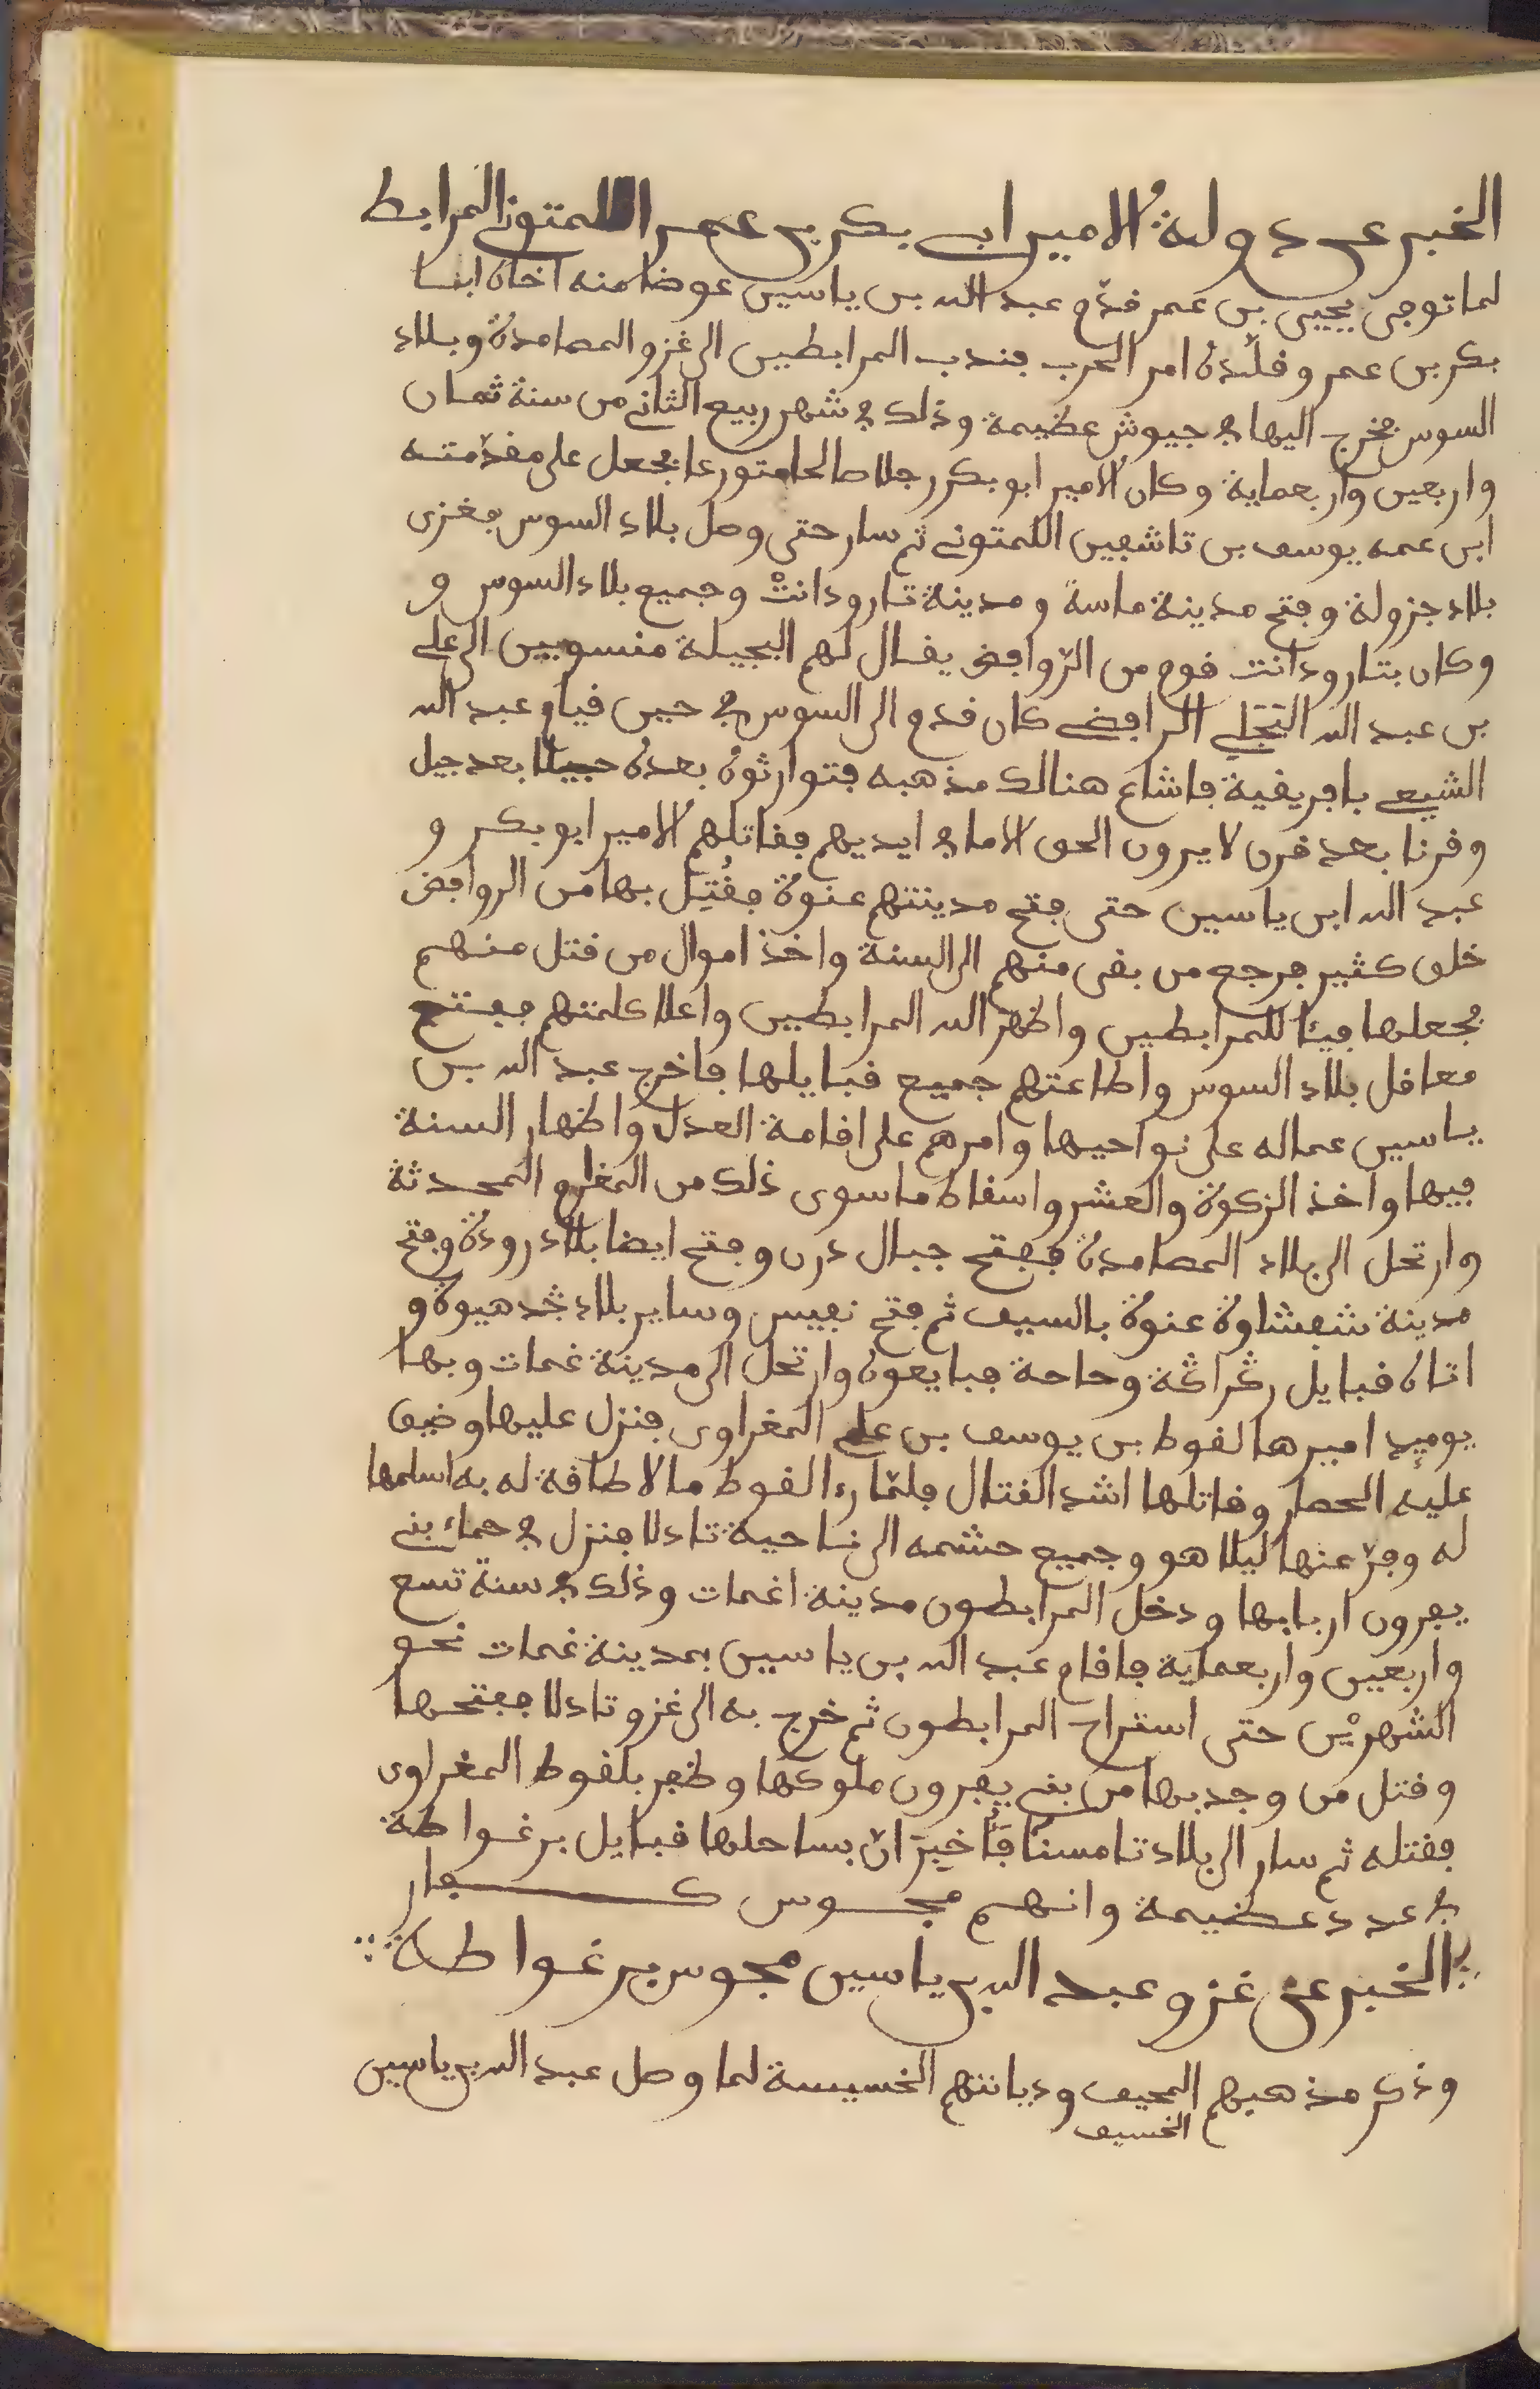 الخبر عن دولة الامير ابي بكر بن عمر اللمتوني المرابط
لما توجى يحيى بن عمر قدّم عبد الله بن ياسين عوضا منه اخاه ابا
بكر بن عمر وقلّده امر الحرب فندب المرابطين الى غزو المصامدة وبلاد
السوس فخرج اليها في جيوش عظيمة وذلك في شهر ربيع الثاني من سنة ثمان
واربعين واربعماية وكان الامير ابو بكر رجلا صالحا متورعا فجعل على مقدّمته
ابن عمه يوسف بن تاشفين اللمتوني ثم سار حتى وصل بلاد السوس فغزى
بلاد جزولة وفتح مدينة ماسة ومدينة تارودانتْ وجميع بلاد السوس و
وكان بتارودانت قوم من الرّوافض يقال لهم البجيلة منسوبين الى علي
بن عبد الله البَجَلي الرافضي كان قدم الى السوس في حين قيام عبد الله
الشيعي بافريقية فاشاع هنالك مذهبه فتوارثوه بعده جيلا بعد جيل
وقرنا بعد قرن لا يرون الحق الا ما في ايديهم فقاتلهم الامير ابو بكر و
عبد الله ابن ياسين حتى فتح مدينتهم عنوة فقُتِل بها من الروافض
خلق كثير فرجع من بقى منهم الى السنة واخذ اموال من قتل منهم
فجعلها فيئا للمرابطين واظهر الله المرابطين واعلا كلمتهم ففتح
معاقل بلاد السوس واطاعتهم جميع قبايلها فاخرج عبد الله بن
ياسين عماله على نواحيها وامرهم على اقامة العدل واظهار السنة
فيها واخذ الزكوة والعشر واسقاط ما سوى ذلك من المغارم المحدثة
وارتحل الى بلاد المصامدة ففتح جبال درن وفتح ايضا بلاد رودة وفتح
مدينة شفشاوة عنوة بالسيف ثم فتح نفيس وساير بلاد ݣدميوة و
اتاه قبايل رݣراݣة وحاحة فبايعوه وارتحل الى مدينة غمات وبها
يوميد اميرها لقوط بن يوسف بن علي المغراوى فنزل عليها وضيق
عليه الحصار وقاتلها اشد القتال فلمّا رءا لقوط ما لا طاقة له به اسلمها
له وفرّ عنها ليلا هو وجميع حشمه الى ناحية تادلا فنزل في حماء بني
يفرون اربابها ودخل المرابطون مدينة اغمات وذلك في سنة تسع
واربعين واربعماية فاقام عبد الله بن ياسين بمدينة غمات نحو
الشهريْن حتى استراح المرابطون ثم خرج به الى غزو تادلا ففتحها
وقتل من وجد بها من بني يفرون ملوكها وظفر بلقوط المغراوى
فقتله ثم سار الى بلاد تامسنا فَأُخبِرَ انّ بساحلها قبايل برغواطة
في عدد عظيمة وانهم مجوس كفار
الخبر عن غزو عبد الله بن ياسين مجوس برغواطة
وذكر مذهبهم المحيف وديانتهم الخسيسة لما وصل عبد الله بن ياسين
الخسيف